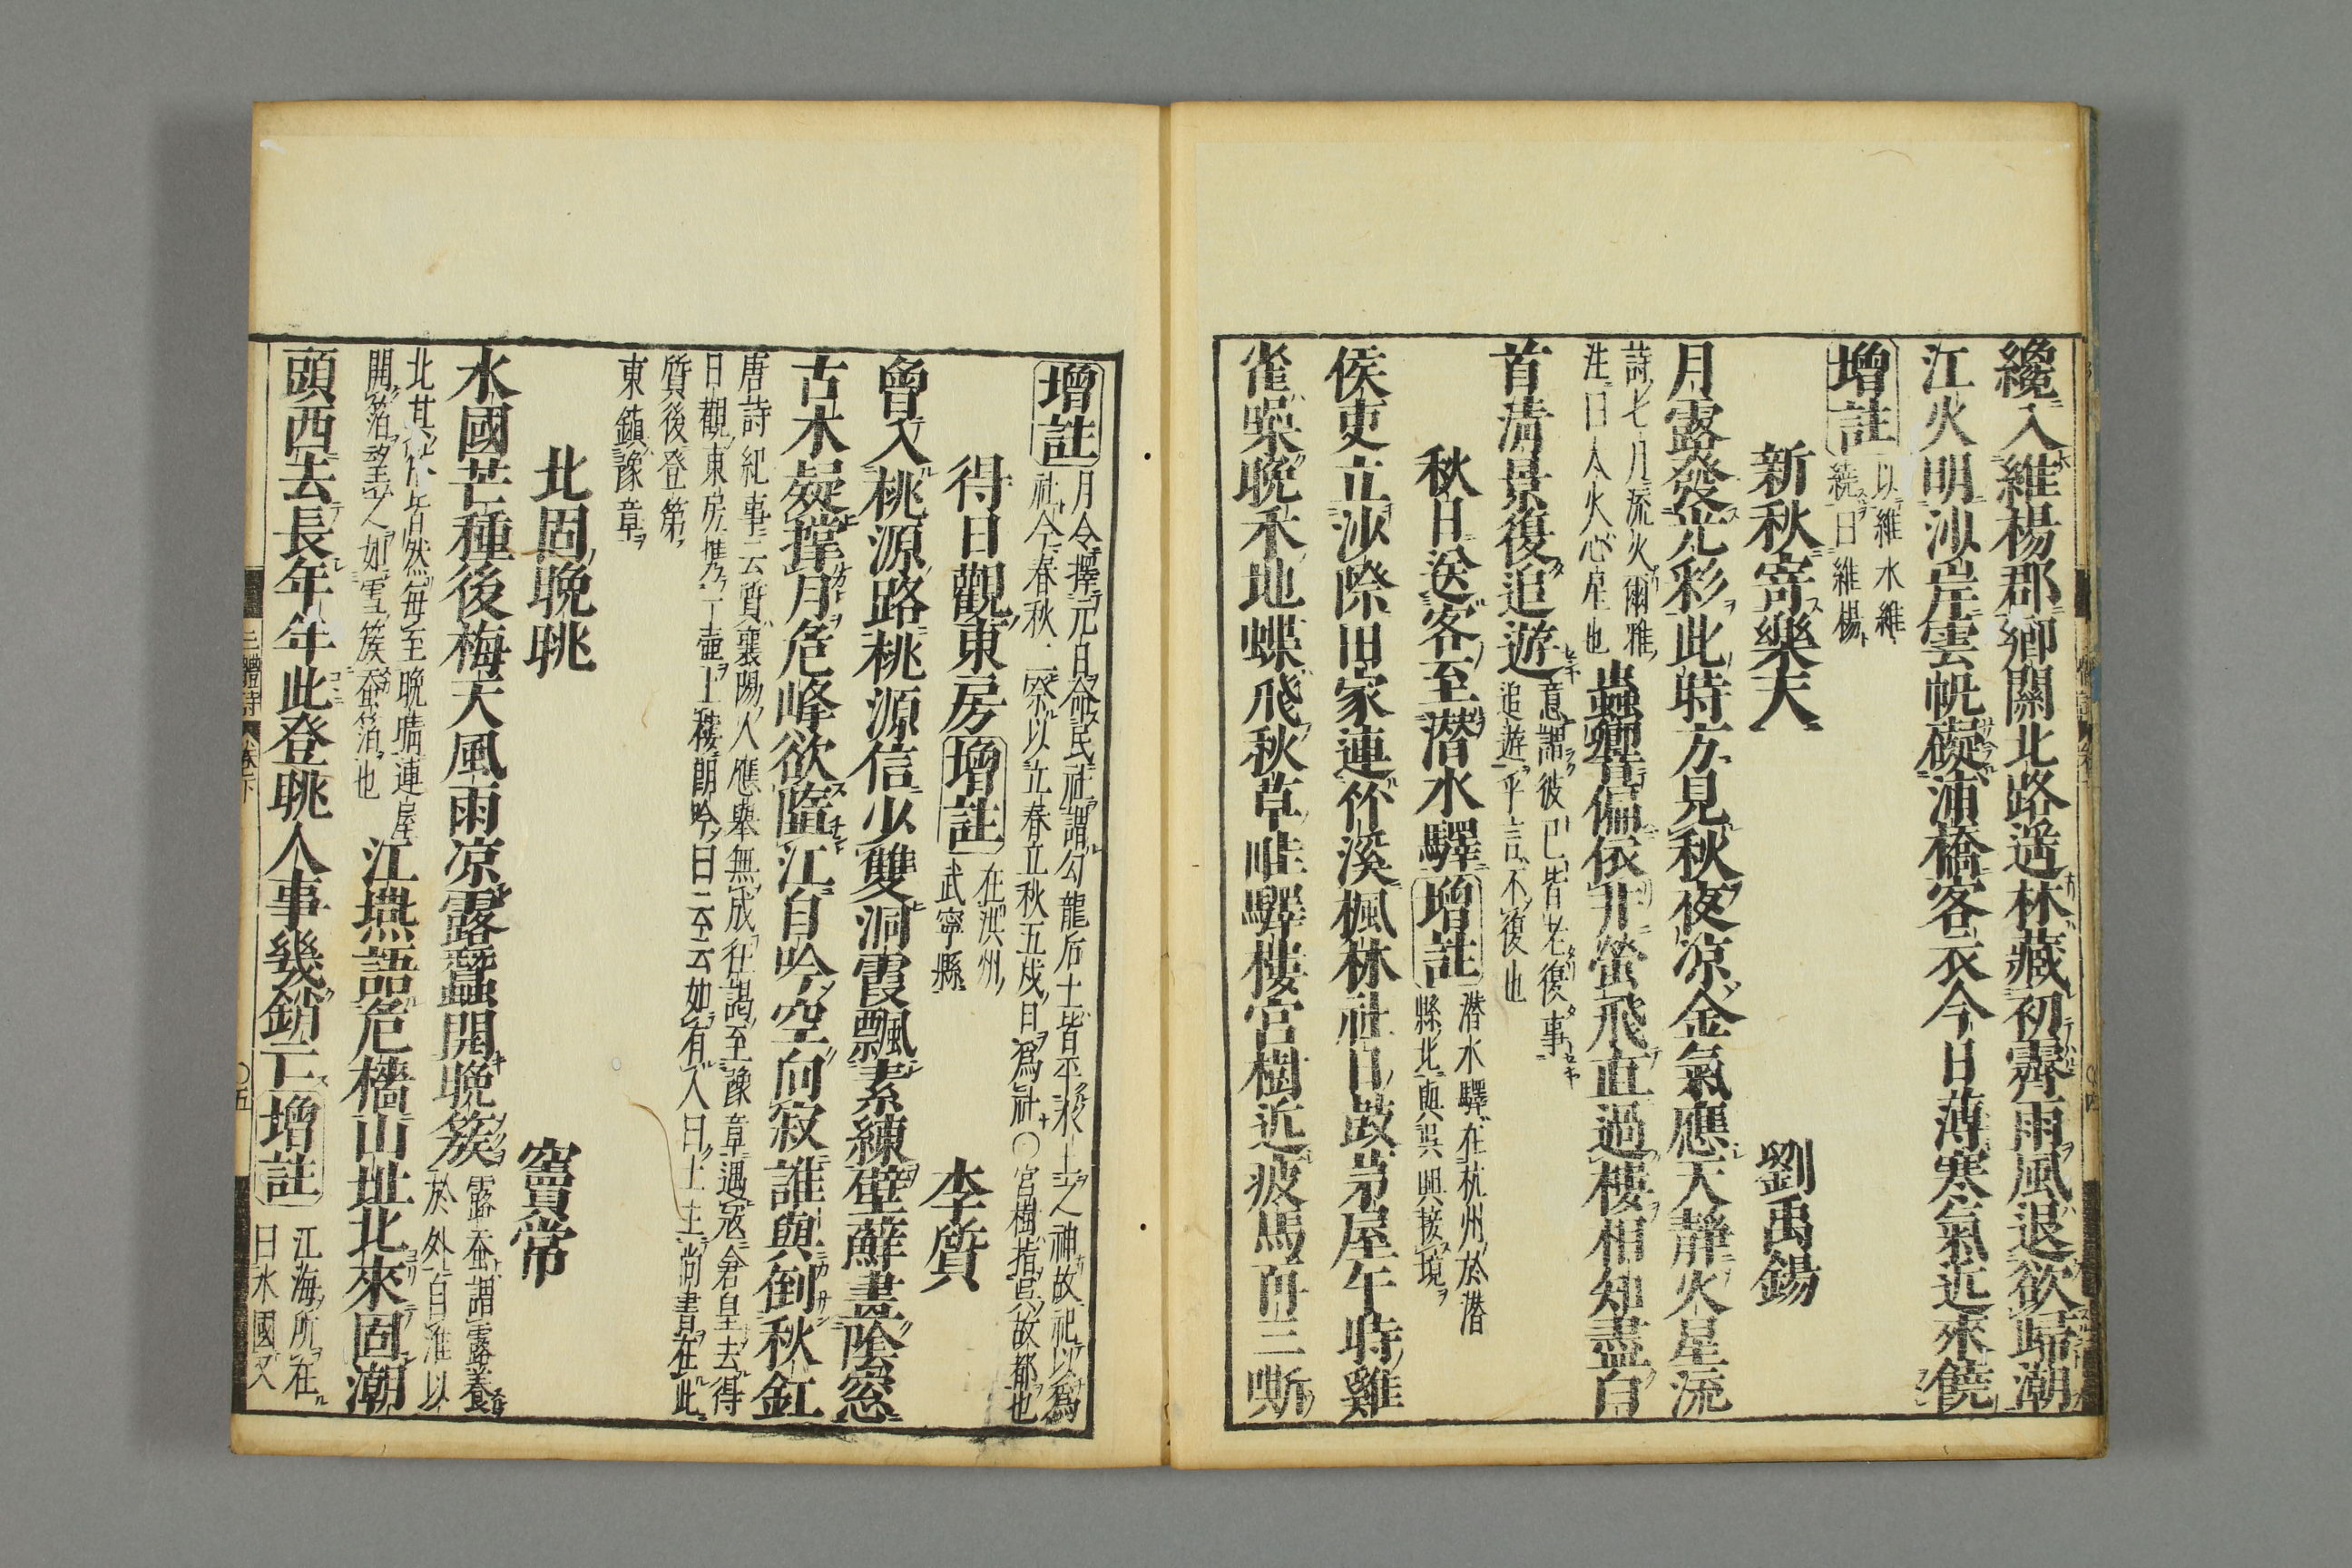 纔入維楊郡鄉關北路遥林藏初霽雨風退欲歸潮
江火明沙岸雲帆礙浦橋客衣今日薄寒氣近來饒
增註
以維水維
繞曰維楊
新秋寄樂天
劉禹錫
月露發光彩此時方見秋夜凉金氣應天靜火星流
詩七月流火爾雅
注曰大火心星也
蟲響偏依井螢飛直過樓相知盡白
首清景復追遊
意謂彼已皆老復事
追遊乎言不復也
秋日送客至潛水驛
增註
潛水驛在杭州於潛
縣北與吳興接境
侯吏立沙際田家連竹溪楓林社日鼓茅屋午時雞
雀噪晚禾地蝶飛秋草畦驛樓宮樹近疲馬再三嘶
增註
月令擇元日命民社謂勾龍后土皆平水土之神故祀以爲
社今春秋二祭以立春立秋五戊日爲社〇宮樹指吳故都也
得日觀東房
增註
在洪州
武寧縣
李質
曾入桃源路桃源信少雙洞霞飄素練壁蘚畫陰窓
古木疑撑月危峰欲墮江自吟空向寂誰與倒秋缸
唐詩紀事云質襄陽人應舉無成往謁至豫章遇寇舍皇去得
日觀東房携一壷上樓朗吟曰云云如有人曰上主尚書在此
質後登第
東鎮豫章
北固晚眺
竇常
水國芒種後梅天風雨凉露蠶開晚簇
露蚕謂露養
於外自淮以
北其俗皆然每至晚晴連屋
開箔望之如雪簇蚕箔也
江燕語危檣山址北來固潮
頭西去長年年此登眺人事幾銷亡
增註
江海所在
曰水國又
三體詩
卷下
〇五